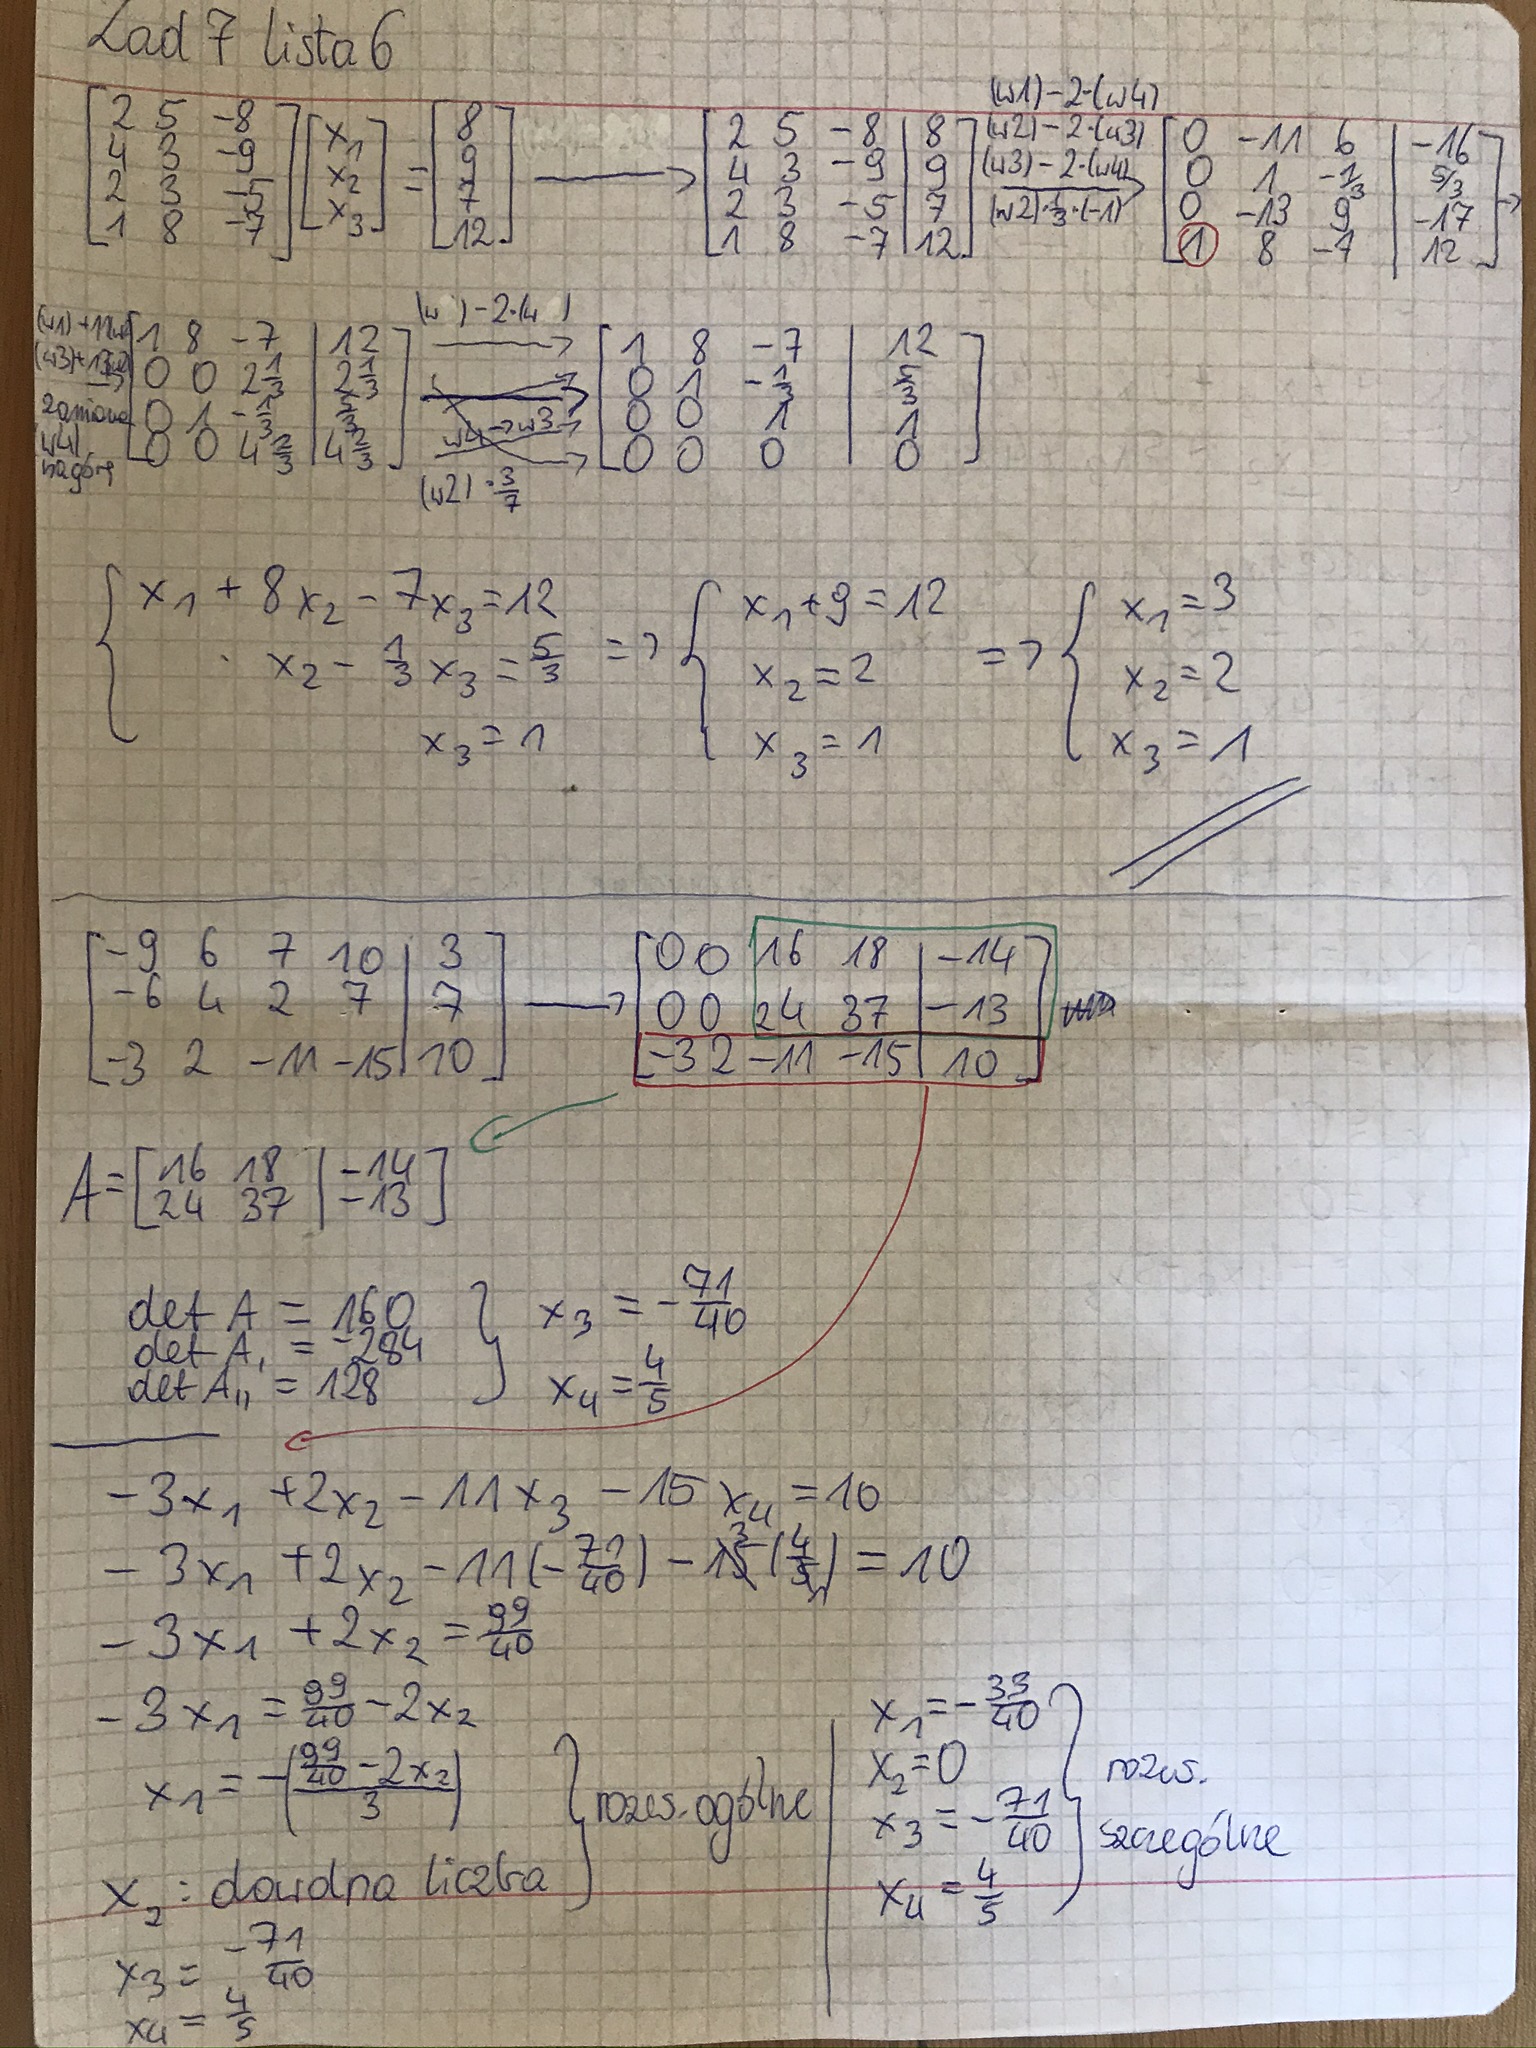 Zad 7 lista 6
[2 5 -8; 4 3 -9; 2 3 -5; 1 8 -7] [x₁; x₂; x₃] = [8; 9; 7; 12] → [2 5 -8 | 8; 4 3 -9 | 9; 2 3 -5 | 7; 1 8 -7 | 12] (w1)-2·(w4) (w2)-2·(w3) (w3)-2·(w4) (w2)·⅓·(-1) → [0 -11 6 | -16; 0 1 -⅓ | 5/3; 0 -13 9 | -17; 1 8 -7 | 12] →
(w3)+13w2 → zamiana (w4) na górę [1 8 -7 | 12; 0 0 2⅓ | 2⅓; 0 1 -⅓ | 5/3; 0 0 4⅔ | 4⅔] (w )-2·(w ) w4→w3 (w2)·3/7 → [1 8 -7 | 12; 0 1 -⅓ | 5/3; 0 0 1 | 1; 0 0 0 | 0]
{ x₁ + 8x₂ - 7x₃ = 12 => { x₁ + 9 = 12 => { x₁ = 3
x₂ - ⅓ x₃ = 5/3 x₂ = 2 x₂ = 2
x₃ = 1 x₃ = 1 x₃ = 1
[-9 6 7 10 | 3; -6 4 2 7 | 7; -3 2 -11 -15 | 10] → [0 0 16 18 | -14; 0 0 24 37 | -13; -3 2 -11 -15 | 10]
A = [16 18 | -14; 24 37 | -13]
det A = 160 } x₃ = -71/40
det A₁ = -284
det A₁₁ = 128 x₄ = 4/5
-3x₁ + 2x₂ - 11x₃ - 15x₄ = 10
-3x₁ + 2x₂ - 11(-71/40) - 15(4/5) = 10
-3x₁ + 2x₂ = 99/40
-3x₁ = 99/40 - 2x₂
x₁ = -((99/40 - 2x₂)/3) } rozw. ogólne
x₂ : dowolna liczba
x₃ = -71/40
x₄ = 4/5
x₁ = -33/40
x₂ = 0 } rozw.
x₃ = -71/40 szczególne
x₄ = 4/5